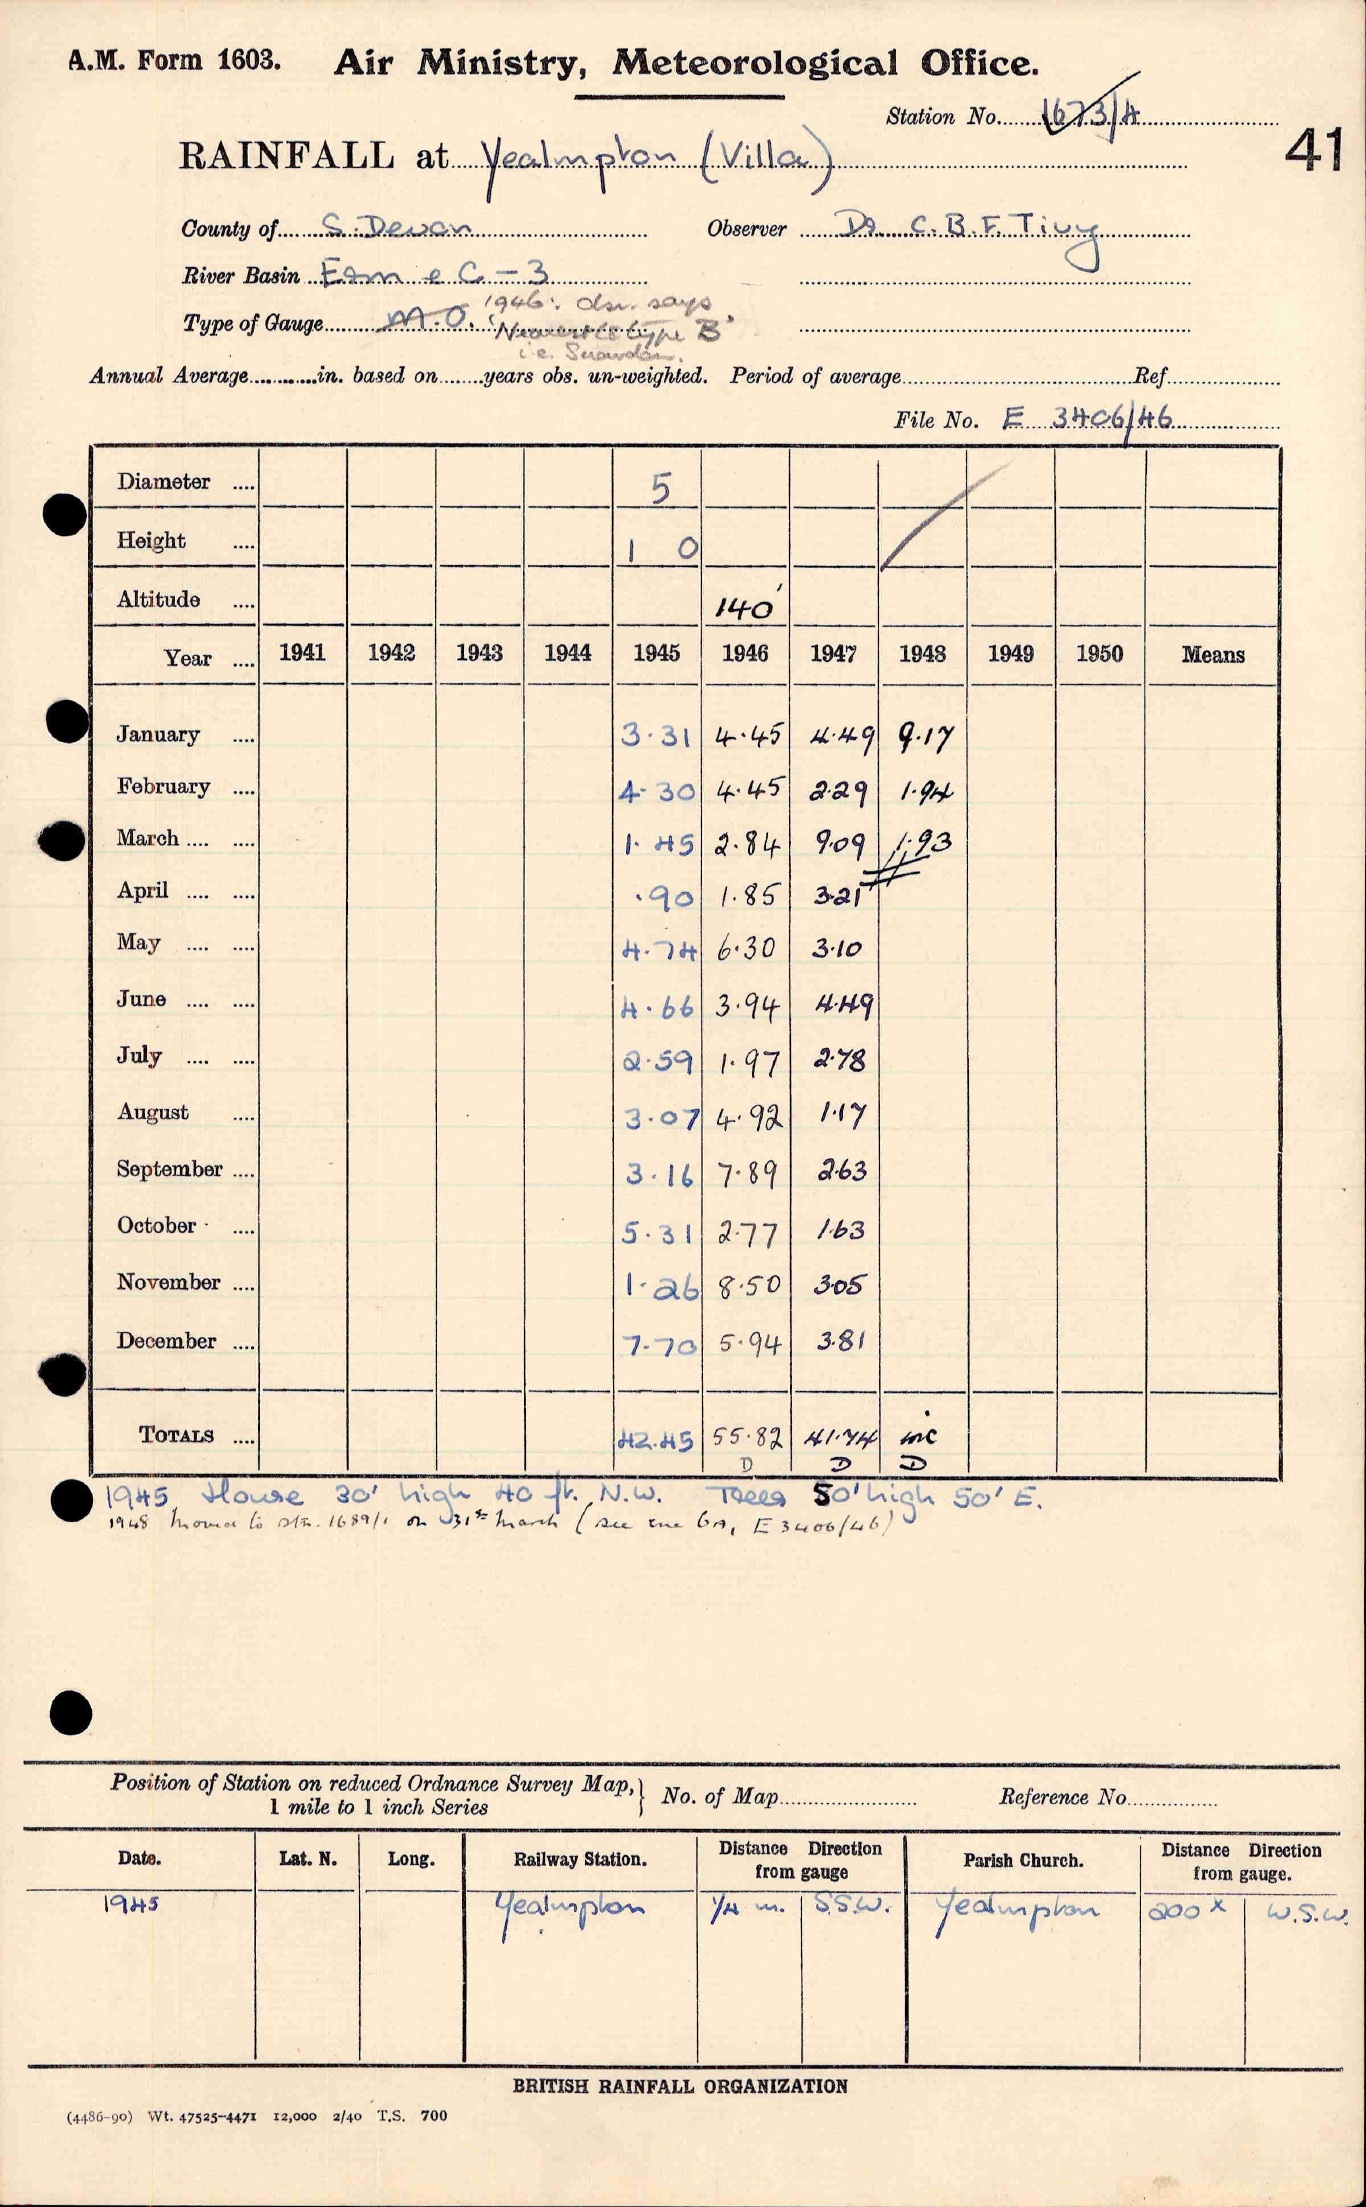 A.M. Form 1603. Air Ministry, Meteorological Office.
Station No. 1673/4
41
RAINFALL at Yealmpton (Villa)
County of S. Devon Observer Dr. C. B. F. Tivy
River Basin Erm e C - 3
Type of Gauge M.O. 1946: obsr. says
type B'
i.e. Snowdon.
Annual Average in. based on years obs. un-weighted. Period of average Ref.
File No. E 3406/46
Diameter .... 5
Height .... 1 0
Altitude .... 140'
Year .... 1941 1942 1943 1944 1945 1946 1947 1948 1949 1950 Means
January .... 3.31 4.45 4.49 9.17
February .... 4.30 4.45 2.29 1.94
March .... .... 1.45 2.84 9.09 1.93
April .... .... .90 1.85 3.21
May .... .... 4.74 6.30 3.10
June .... .... 4.66 3.94 4.49
July .... .... 2.59 1.97 2.78
August .... 3.07 4.92 1.17
September .... 3.16 7.89 2.63
October .... 5.31 2.77 1.63
November .... 1.26 8.50 3.05
December .... 7.70 5.94 3.81
TOTALS .... 42.45 55.82 41.74 inc
D D D
1945 House 30' high 40 ft. N.W. Trees 50' high 50' E.
1948 Moved to stn. 1689/1 on 31st March (see E 3406/46)
Position of Station on reduced Ordnance Survey Map, 1 mile to 1 inch Series } No. of Map Reference No.
Date. Lat. N. Long. Railway Station. Distance Direction from gauge Parish Church. Distance Direction from gauge.
1945 Yealmpton 1/4 m. S.S.W. Yealmpton 200 x W.S.W.
BRITISH RAINFALL ORGANIZATION
(4486-90) Wt. 47525-4471 12,000 2/40 T.S. 700